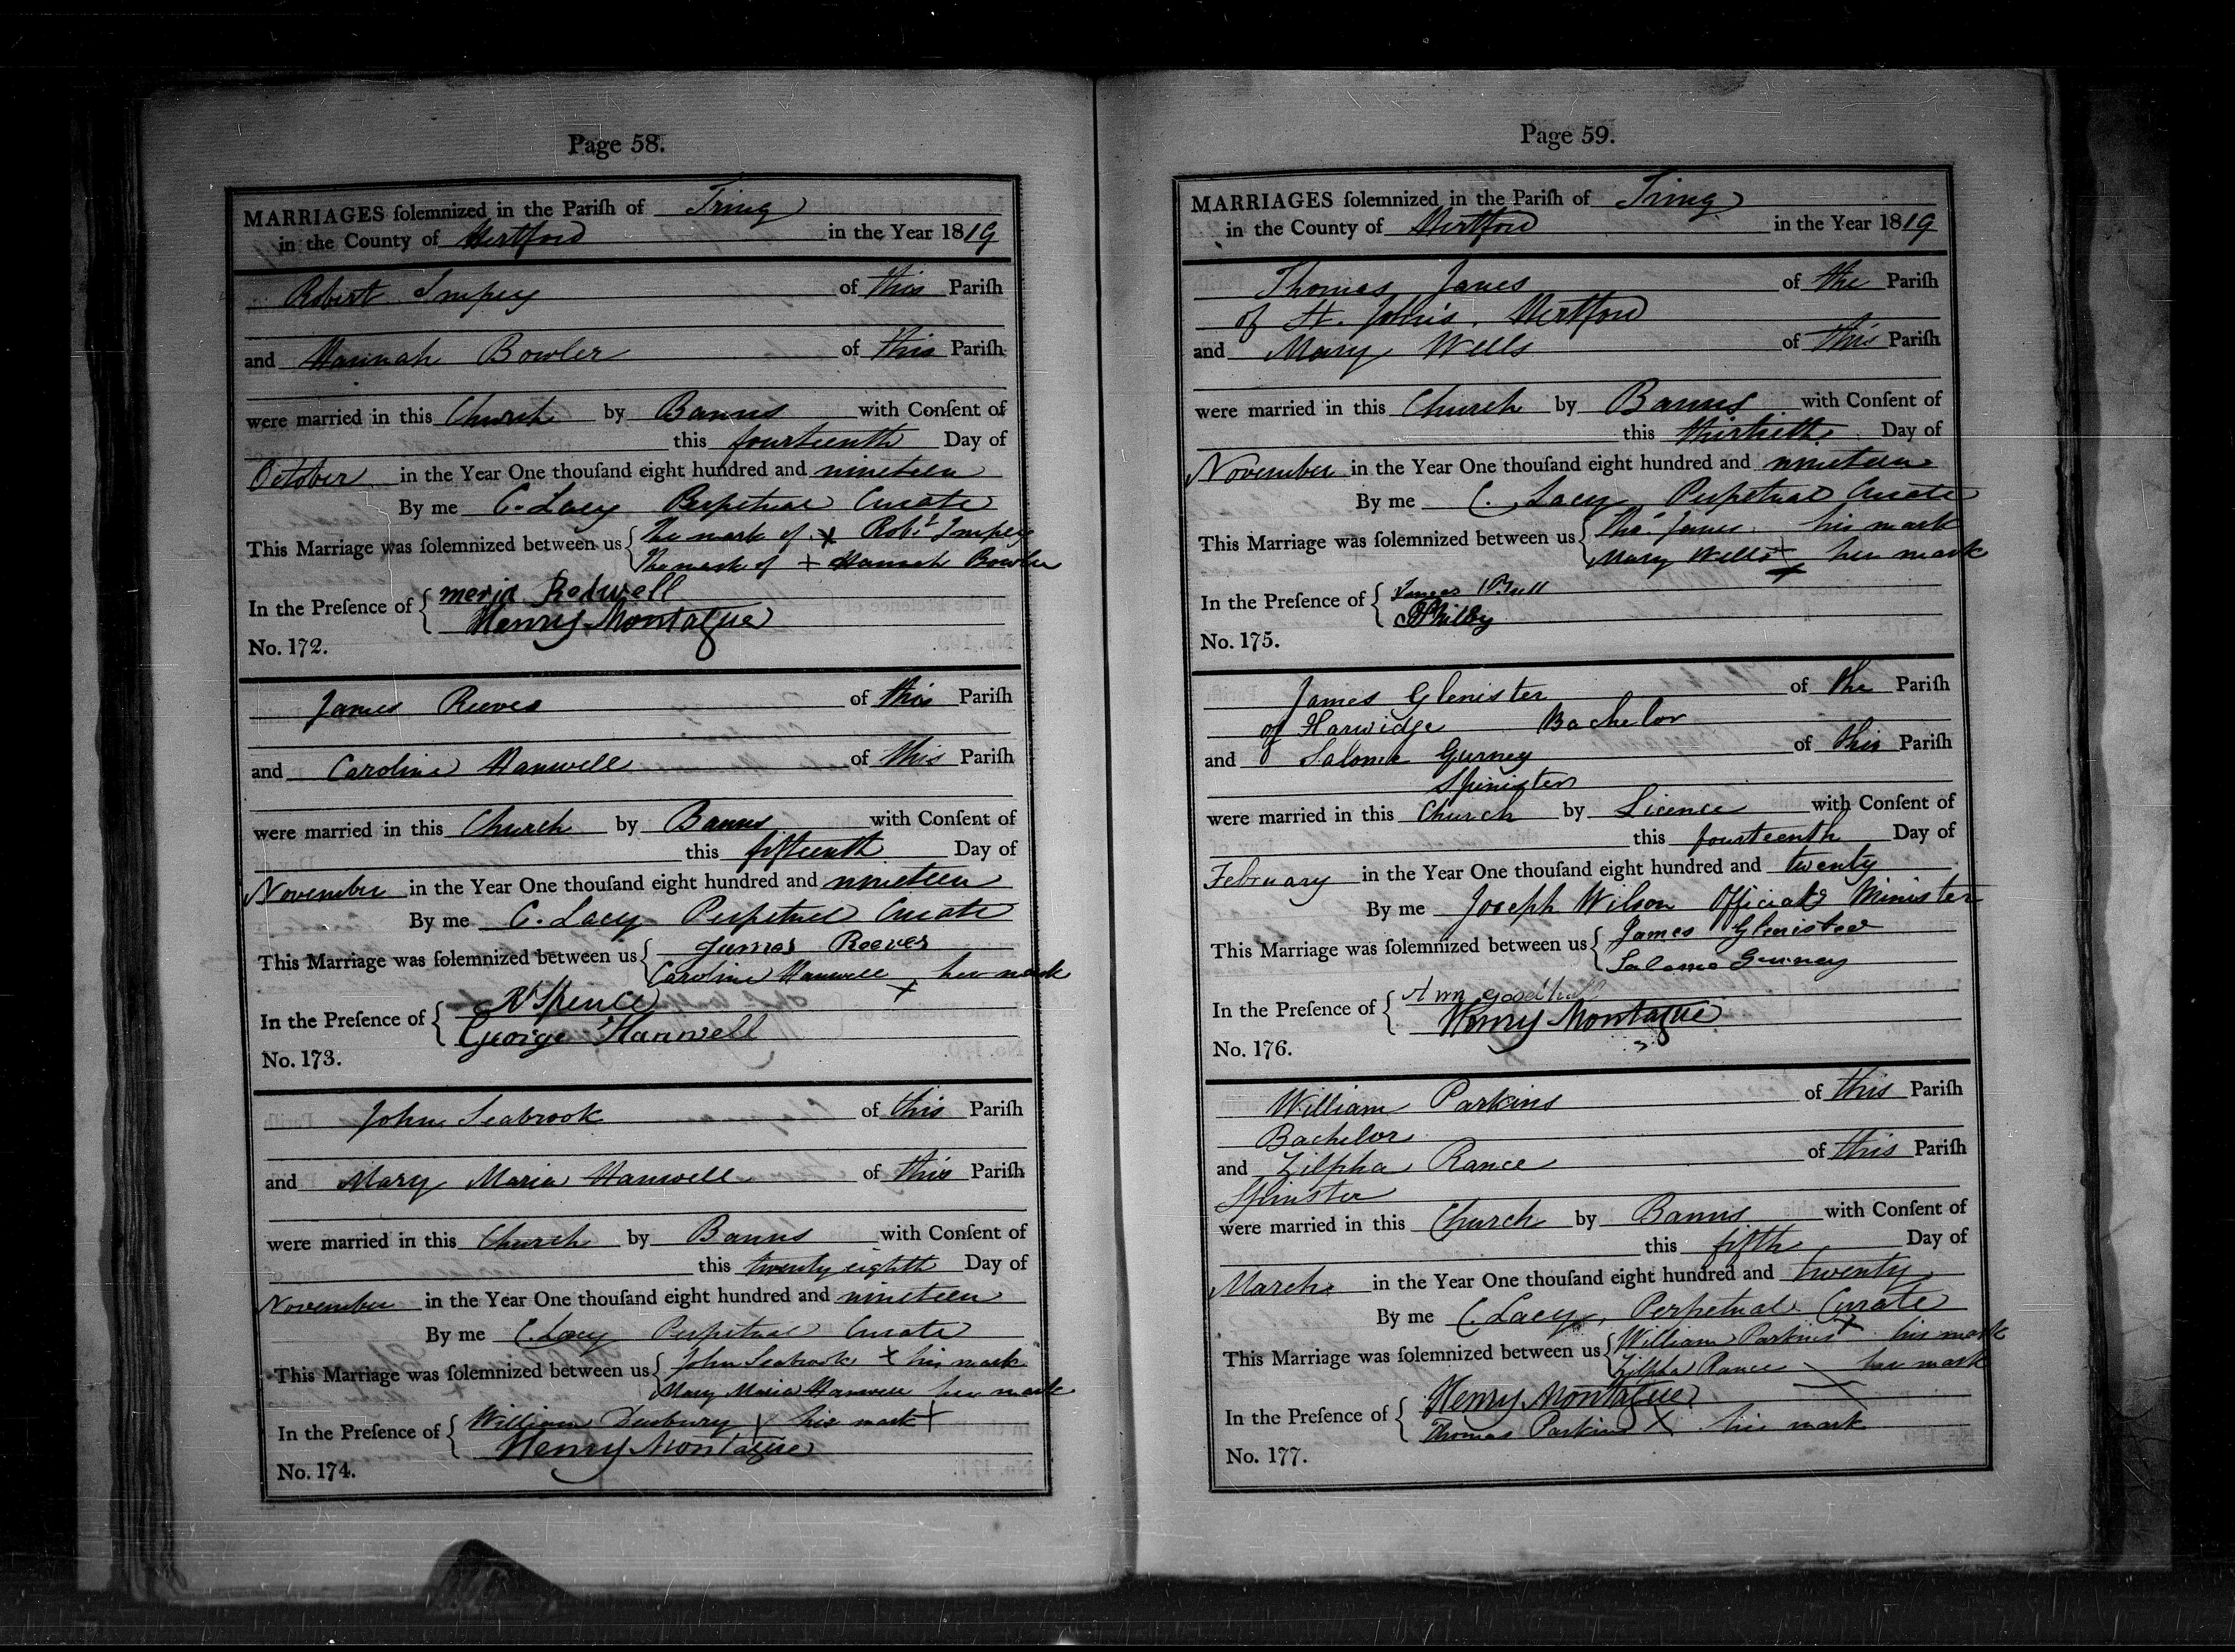 Page 58.
MARRIAGES ſolemnized in the Pariſh of Tring
in the County of Hertford in the Year 1819
Robert Impey of this Pariſh
and Hannah Bowler of this Pariſh
were married in this Church by Banns with Conſent of
this fourteenth Day of
October in the Year One thouſand eight hundred and nineteen
By me C. Lacy Perpetual Curate
This Marriage was ſolemnized between us The mark of x Robt Impey
The mark of + Hannah Bowler
In the Preſence of Redwell
Henry Montague
No. 172.
James Reeves of this Pariſh
and Caroline Hanwell of this Pariſh
were married in this Church by Banns with Conſent of
this fifteenth Day of
November in the Year One thouſand eight hundred and nineteen
By me C. Lacy Perpetual Curate
This Marriage was ſolemnized between us James Reeves
Caroline Hanwell + her mark
In the Preſence of Spence
George Hanwell
No. 173.
John Seabrook of this Pariſh
and Mary Maria Hanwell of this Pariſh
were married in this Church by Banns with Conſent of
this twenty eighth Day of
November in the Year One thouſand eight hundred and nineteen
By me C. Lacy Perpetual Curate
This Marriage was ſolemnized between us John Seabrook x his mark
Mary Maria Hanwell her mark
In the Preſence of William + his mark +
Henry Montague
No. 174.
Page 59.
MARRIAGES ſolemnized in the Pariſh of Tring
in the County of Hertford in the Year 1819
Thomas Janes of the Pariſh
of St. John's, Hertford
and Mary Wells of this Pariſh
were married in this Church by Banns with Conſent of
this thirtieth Day of
November in the Year One thouſand eight hundred and nineteen
By me C. Lacy Perpetual Curate
This Marriage was ſolemnized between us Thos. Janes his mark
Mary Wells + her mark
In the Preſence of James Bull
Philby
No. 175.
James Glenister of the Pariſh
of Harwidge Bachelor
and Salome Gurney of this Pariſh
Spinister
were married in this Church by Licence with Conſent of
this fourteenth Day of
February in the Year One thouſand eight hundred and twenty
By me Joseph Wilson Officiatg Minister
This Marriage was ſolemnized between us James Glenister
Salome Gurney
In the Preſence of Ann Goodhall
Henry Montague
No. 176.
William Parkins of this Pariſh
Bachelor
and Zilpha Rance of this Pariſh
Spinster
were married in this Church by Banns with Conſent of
this fifth Day of
March in the Year One thouſand eight hundred and twenty
By me C. Lacy, Perpetual Curate
This Marriage was ſolemnized between us William Parkins + his mark
Zilpha Rance her mark
In the Preſence of Henry Montague
Thomas Parkins X his mark
No. 177.